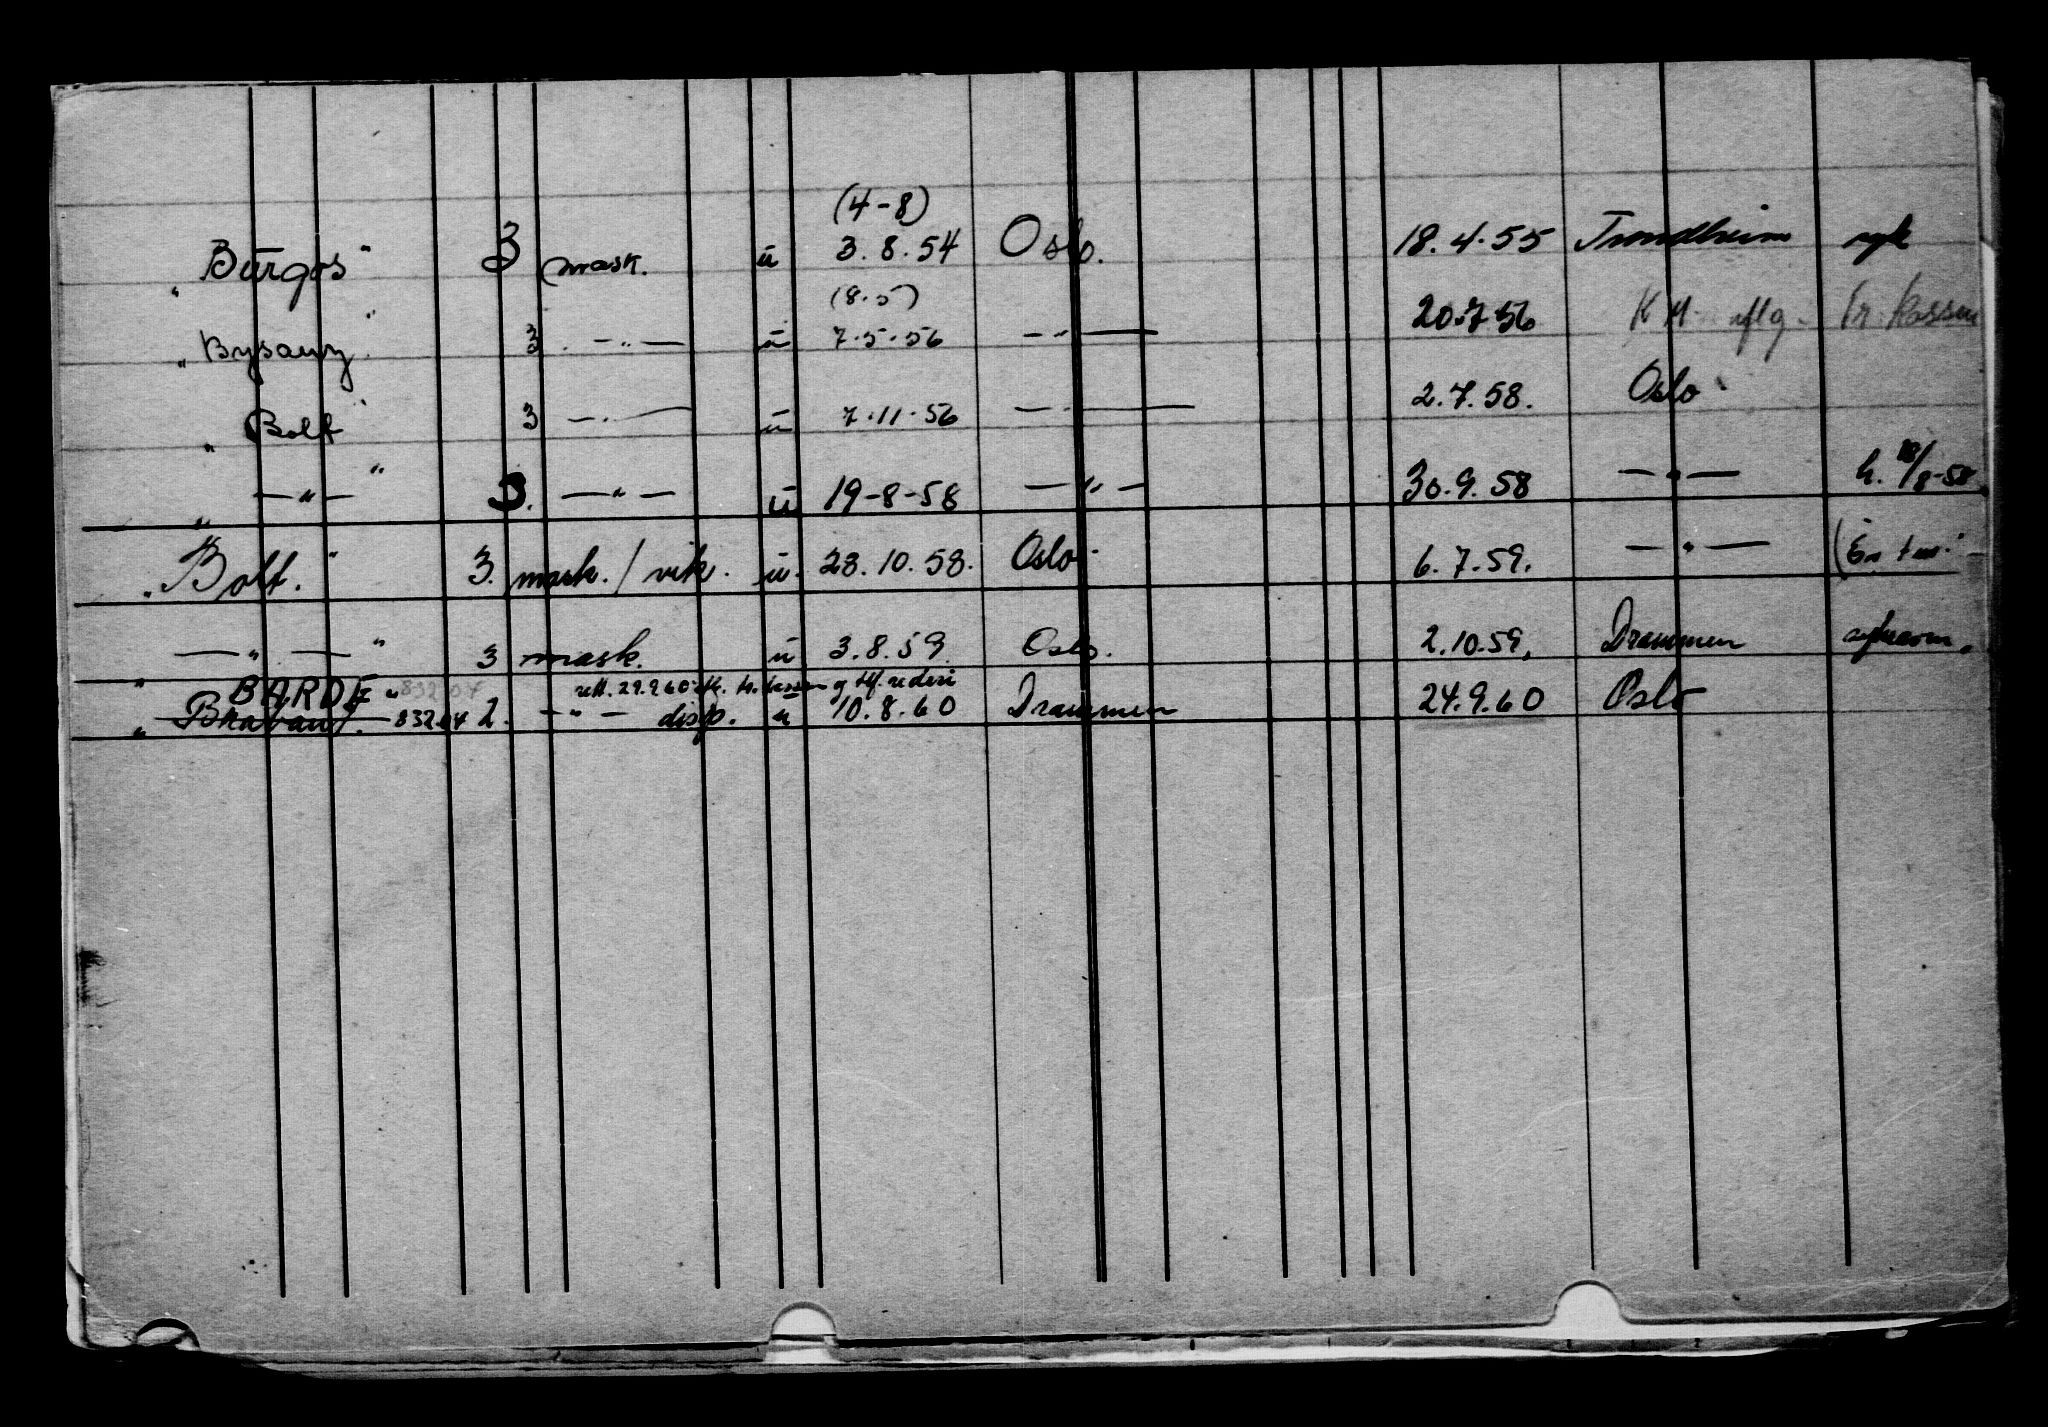 (4-8)
„Burgos" 3 mask. u 3.8.54 Oslo. 18.4.55 Trondheim syk
(8.5)
„Bysanz" 3 — „ — u 7.5.56 — „ — 20.7.56 K.M.
„Bolt" 3 — „ — u 7.11.56 — „ — 2.7.58. Oslo
„ — „ — " 3. — „ — u 19-8-58 — „ — 30.9.58 — „ — h. 18/8-58
„Bolt." 3. mask./vik. u. 28.10.58. Oslo 6.7.59. — „ — (En tur.
„ — „ — " 3 mask. u 3.8.59 Oslo. 2.10.59, Drammen
BARDE" 83204 rett. 29.9.60 og tlf. rederi
„Bhavani. 83204 2. — „ — disp. u 10.8.60 Drammen 24.9.60 Oslo